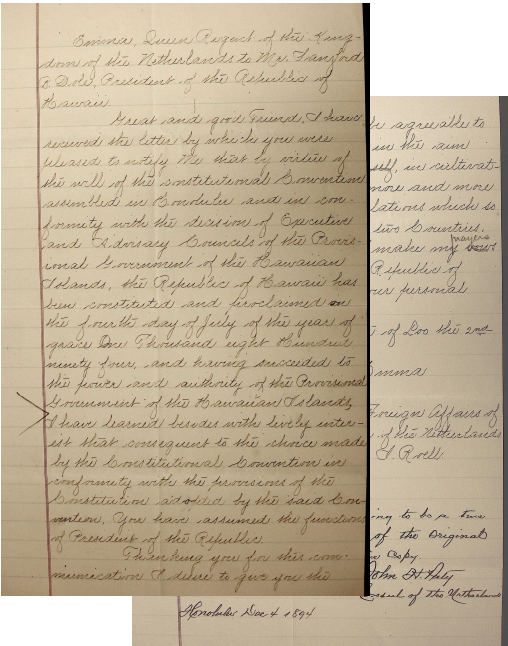 Emma, Queen Regent of the King-
dom of the Netherlands to Mr. Sanford
B Dole, President of the Republic of
Hawaii
Great and good Friend, I have
received the letter by which you were
pleased to notify Me that by virtue of
the will of the constitutional Convention
assembled in Honolulu and in con-
formity with the decision of Executive
and Advisary Councils of the Provis-
ional Government of the Hawaiian
Islands, the Republic of Hawaii has
been constituted and proclaimed on
the fourth day of July of the year of
grace One Thousand eight Hundred
ninety four, and having succeeded to
the power and authority of the Provisional
Government of the Hawaiian Islands,
I have learned besides with lively inter-
est that consequent to the choice made
by the Constitutional Convention in
conformity with the provisions of the
Constitution adopted by the said Con-
vention, You have assumed the functions
of President of the Republic
Thanking you for this com-
munication I desire to give you the
be agreable to
in the aim
self, in cultivat-
more and more
lations which is
two Countries.
prayers
make my vows
Republic of
our personal
of Loo the 2nd
Emma
Foreign Affairs of
of the Netherlands
J. Roell
ing to be a true
of the Original
Copy
John H. Paty
Consul of the Netherlands
Honolulu Dec 4 1894